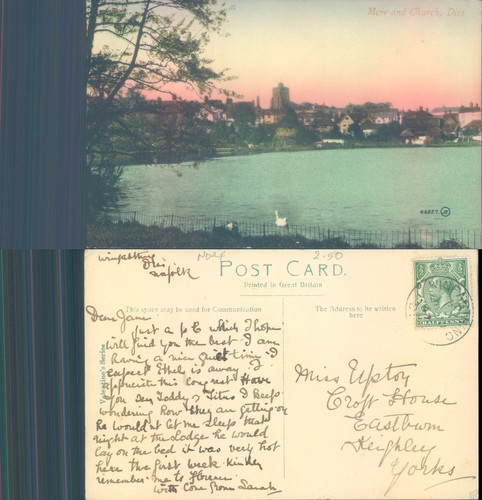 Mere and Church, Diss
Winfarthing
Diss
Norfolk
Norf
2-50
POST CARD.
Printed in Great Britain
This space may be used for Communication
The Address to be written
here
Valentine's Series
Dear Jane
Just a p c which I hope
will find you the best. I am
having a nice quiet time. I
expect Ethel is away. I
appreciate this long rest Have
you seen Teddy & Titus I keep
wondering how they are getting on
He would not let me sleep that
night at the Lodge he would
lay on the bed it was very hot
here the first week Kindly
remember me to Florence
With Love from Sarah
Miss Upton
Croft House
Eastburn
Keighley
Yorks